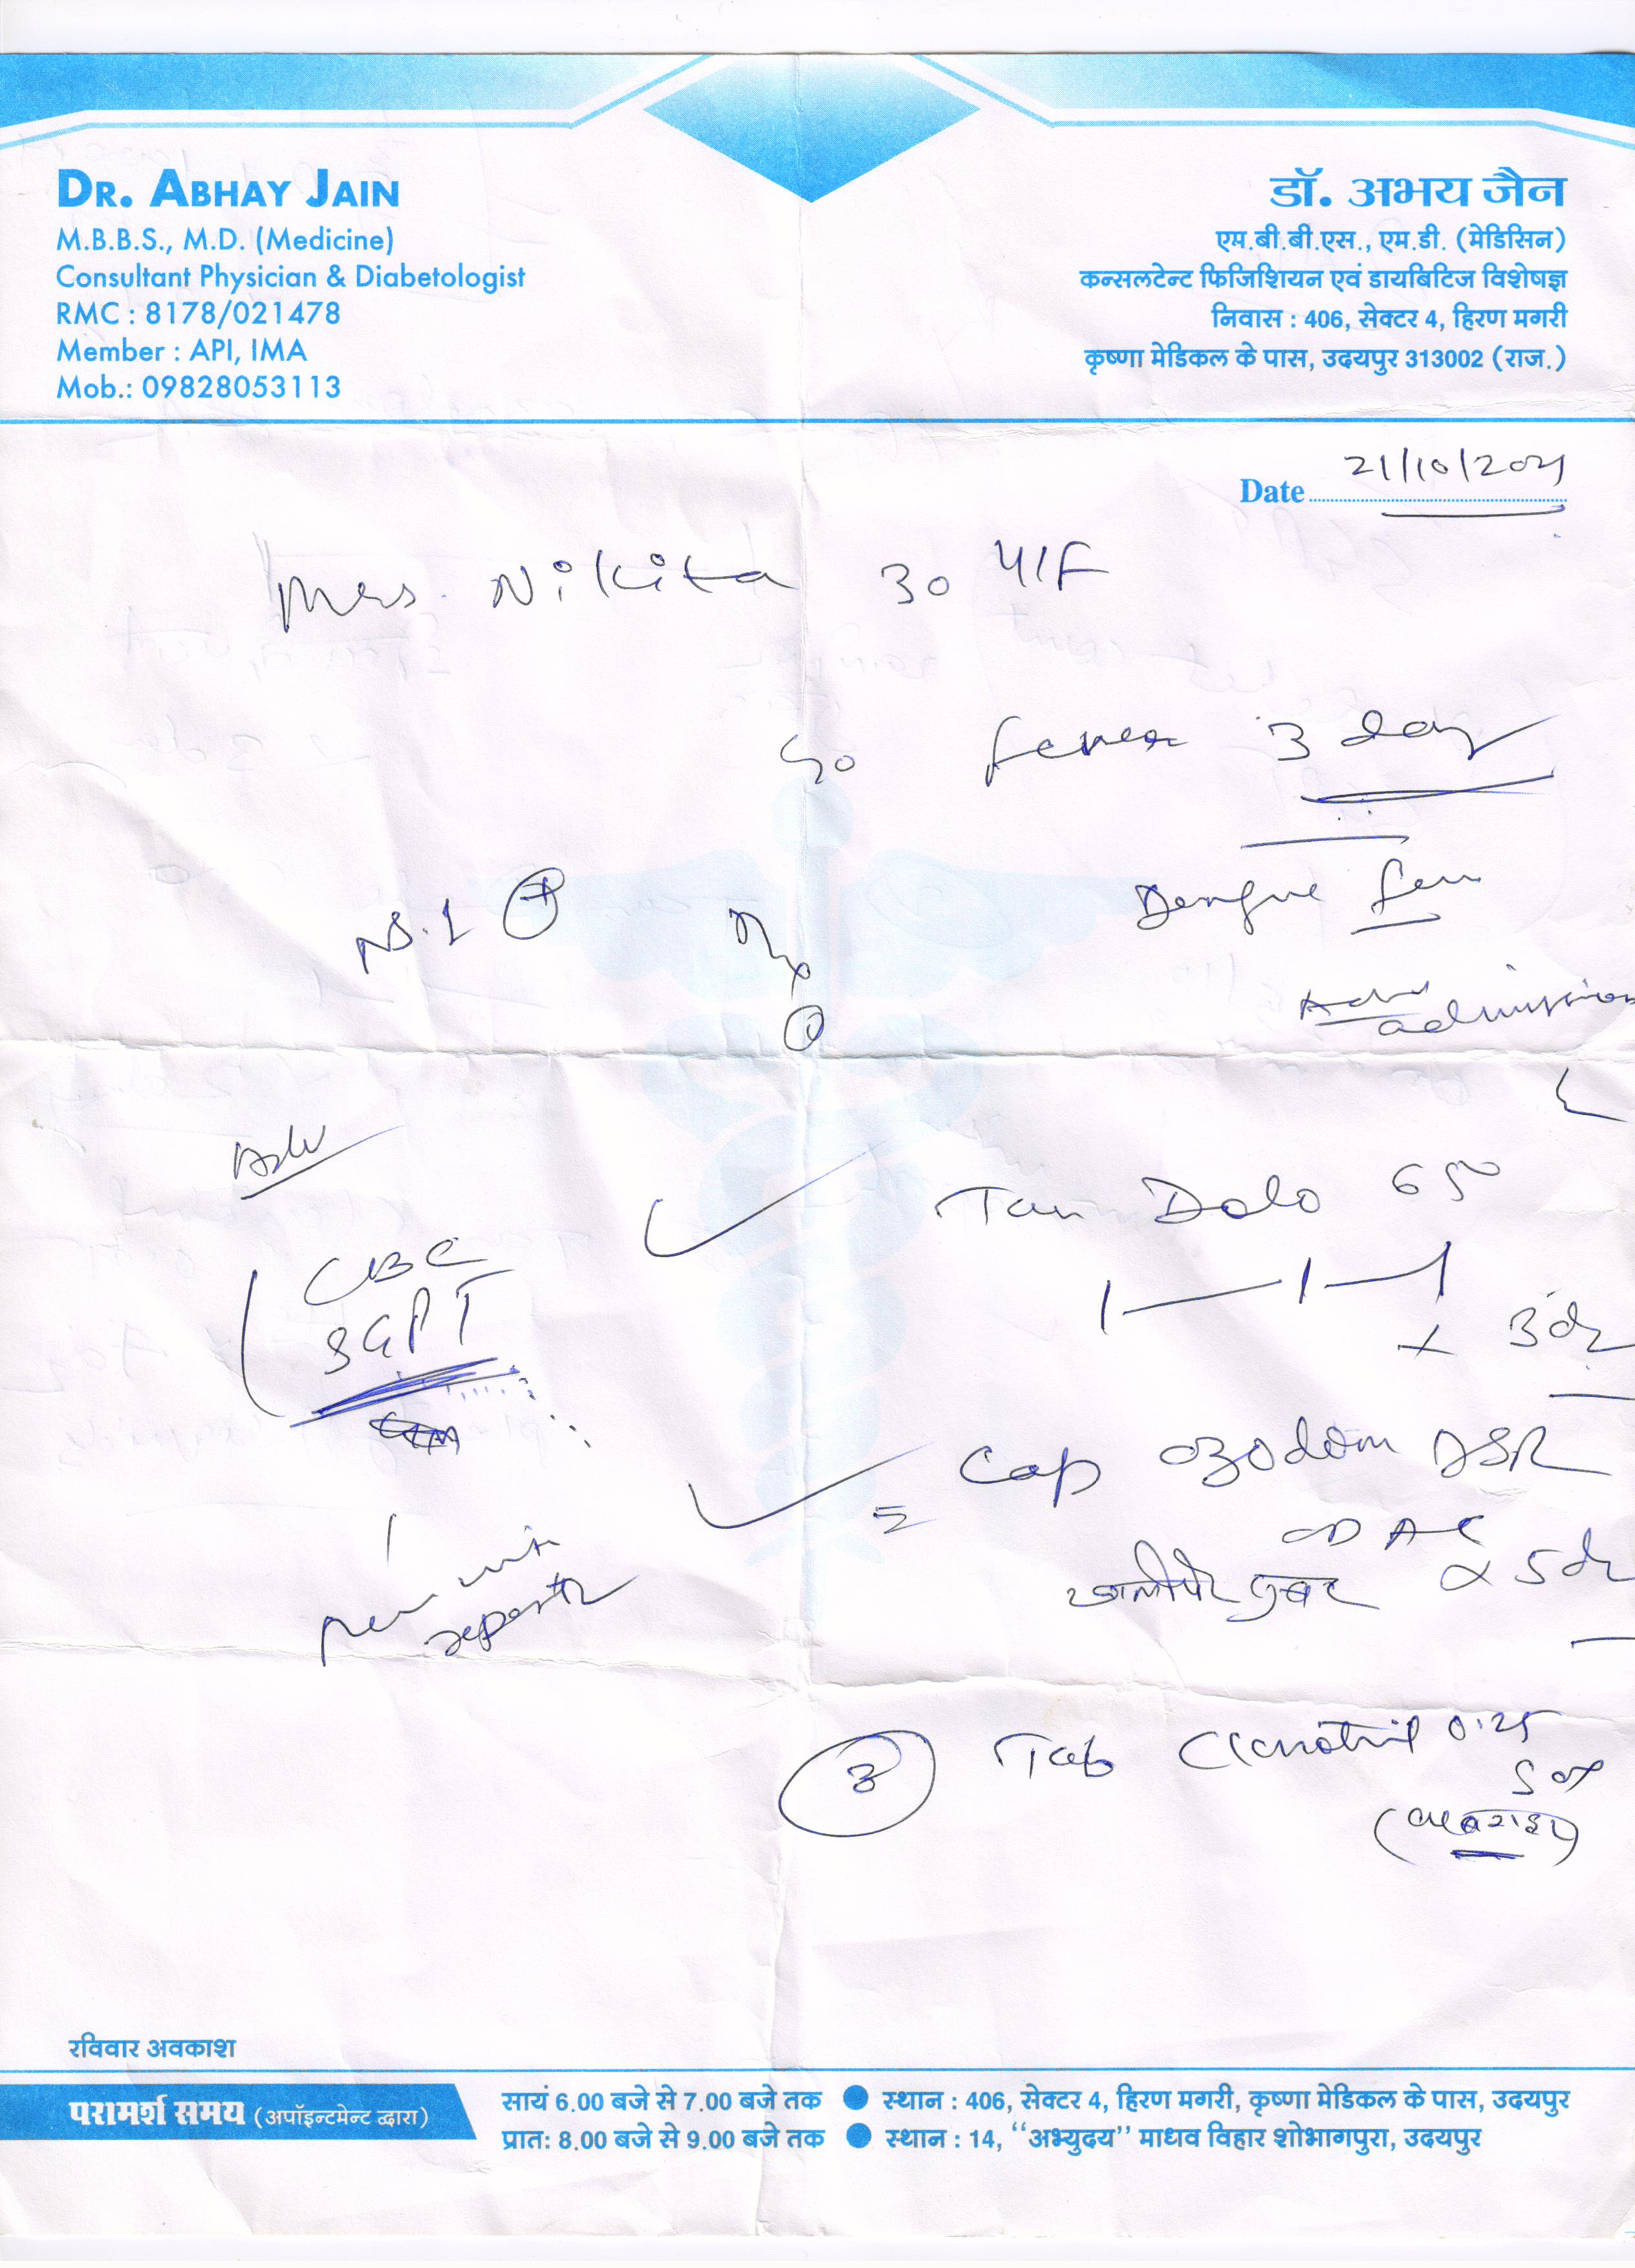 DR. ABHAY JAIN
M.B.B.S., M.D. (Medicine)
Consultant Physician & Diabetologist
RMC : 8178/021478
Member : API, IMA
Mob.: 09828053113
डॉ. अभय जैन
एम.बी.बी.एस., एम.डी. (मेडिसिन)
कन्सलटेन्ट फिजिशियन एवं डायबिटिज विशेषज्ञ
निवास : 406, सेक्टर 4, हिरण मगरी
कृष्णा मेडिकल के पास, उदयपुर 313002 (राज.)
Date 21/10/2021
Mrs. Nikita 30 Y/F
fever 3 day
NS.1 +
Dengue
Adv
admission
Adv
CBC
SGPT
Dolo 650
1—1—1
x 3
Cap Ozodom DSR
OD AC
x 5
reports
3 Tab 0.25
SOS
रविवार अवकाश
परामर्श समय (अपॉइन्टमेन्ट द्वारा)
सायं 6.00 बजे से 7.00 बजे तक ● स्थान : 406, सेक्टर 4, हिरण मगरी, कृष्णा मेडिकल के पास, उदयपुर
प्रात: 8.00 बजे से 9.00 बजे तक ● स्थान : 14, ‘‘अभ्युदय’’ माधव विहार शोभागपुरा, उदयपुर